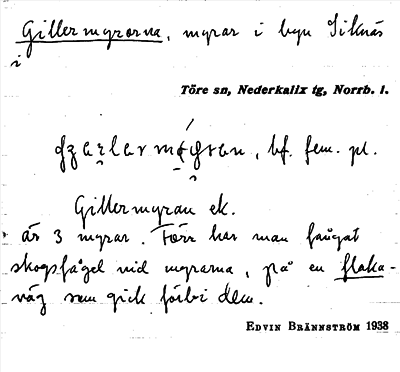 Gillermyrorna, myrar i byn Siknäs
i
Töre sn, Nederkalix tg, Norrb. l.
bf. fem. pl.
Gillermyran ek.
är 3 myrar. Förr har man fångat
skogsfågel vid myrarna, på en flaka-
väg som gick förbi dem.
EDVIN BRÄNNSTRÖM 1938